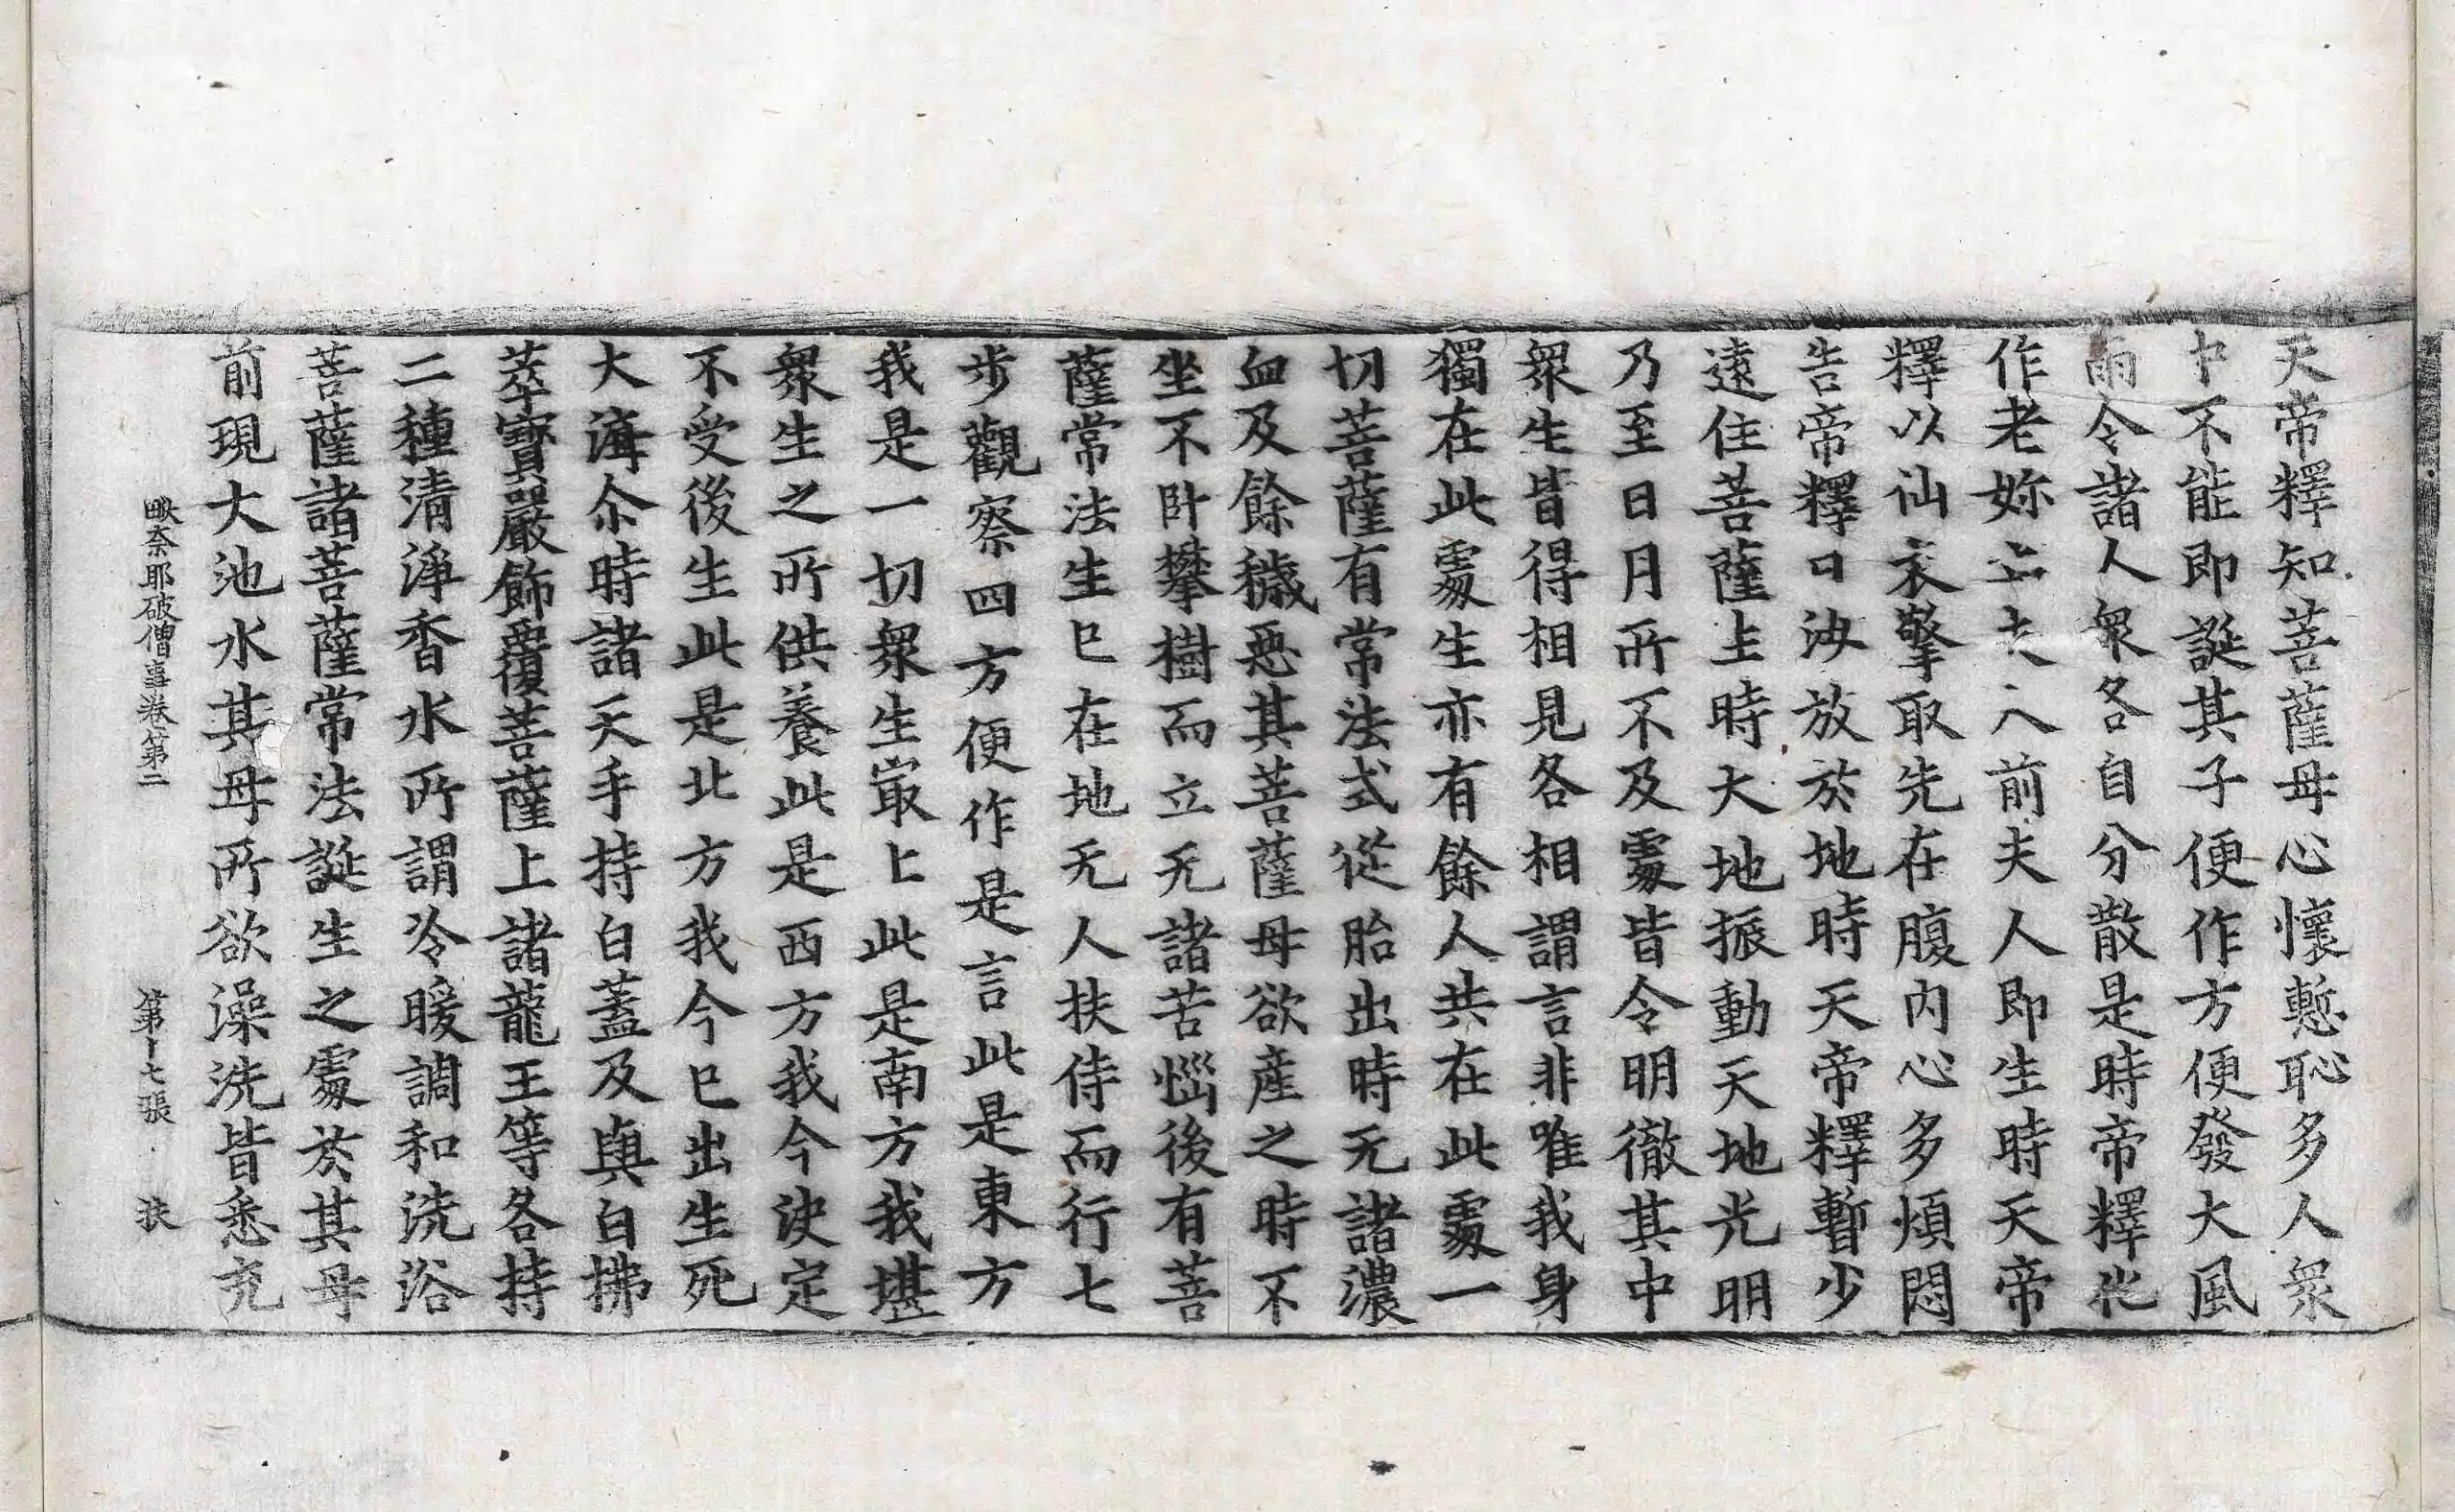 天帝釋知菩薩母心懷慙恥多人衆
中不能即誕其子便作方便發大風
雨令諸人衆各自分散是時帝釋化
作老妳 前夫人即生時天帝
釋以仙衣擎取先在腹內心多煩悶
告帝釋曰汝放於地時天帝釋暫少
遠住菩薩上時大地振動天地光明
乃至日月所不及處皆令明徹其中
衆生皆得相見各相謂言非唯我身
獨在此處生亦有餘人共在此處一
切菩薩有常法式從胎出時无諸濃
血及餘穢惡其菩薩母欲産之時不
坐不卧攀樹而立无諸苦惱後有菩
薩常法生已在地无人扶侍而行七
步觀察四方便作是言此是東方
我是一切衆生㝡上此是南方我堪
衆生之所供養此是西方我今決定
不受後生此是北方我今已出生死
大海尒時諸天手持白蓋及與白拂
莘寶嚴飾覆菩薩上諸龍王等各持
二種清淨香水所謂冷暖調和洗浴
菩薩諸菩薩常法誕生之處於其母
前現大池水其母所欲澡洗皆悉充
毗奈耶破僧事卷第二 第十七張 扶